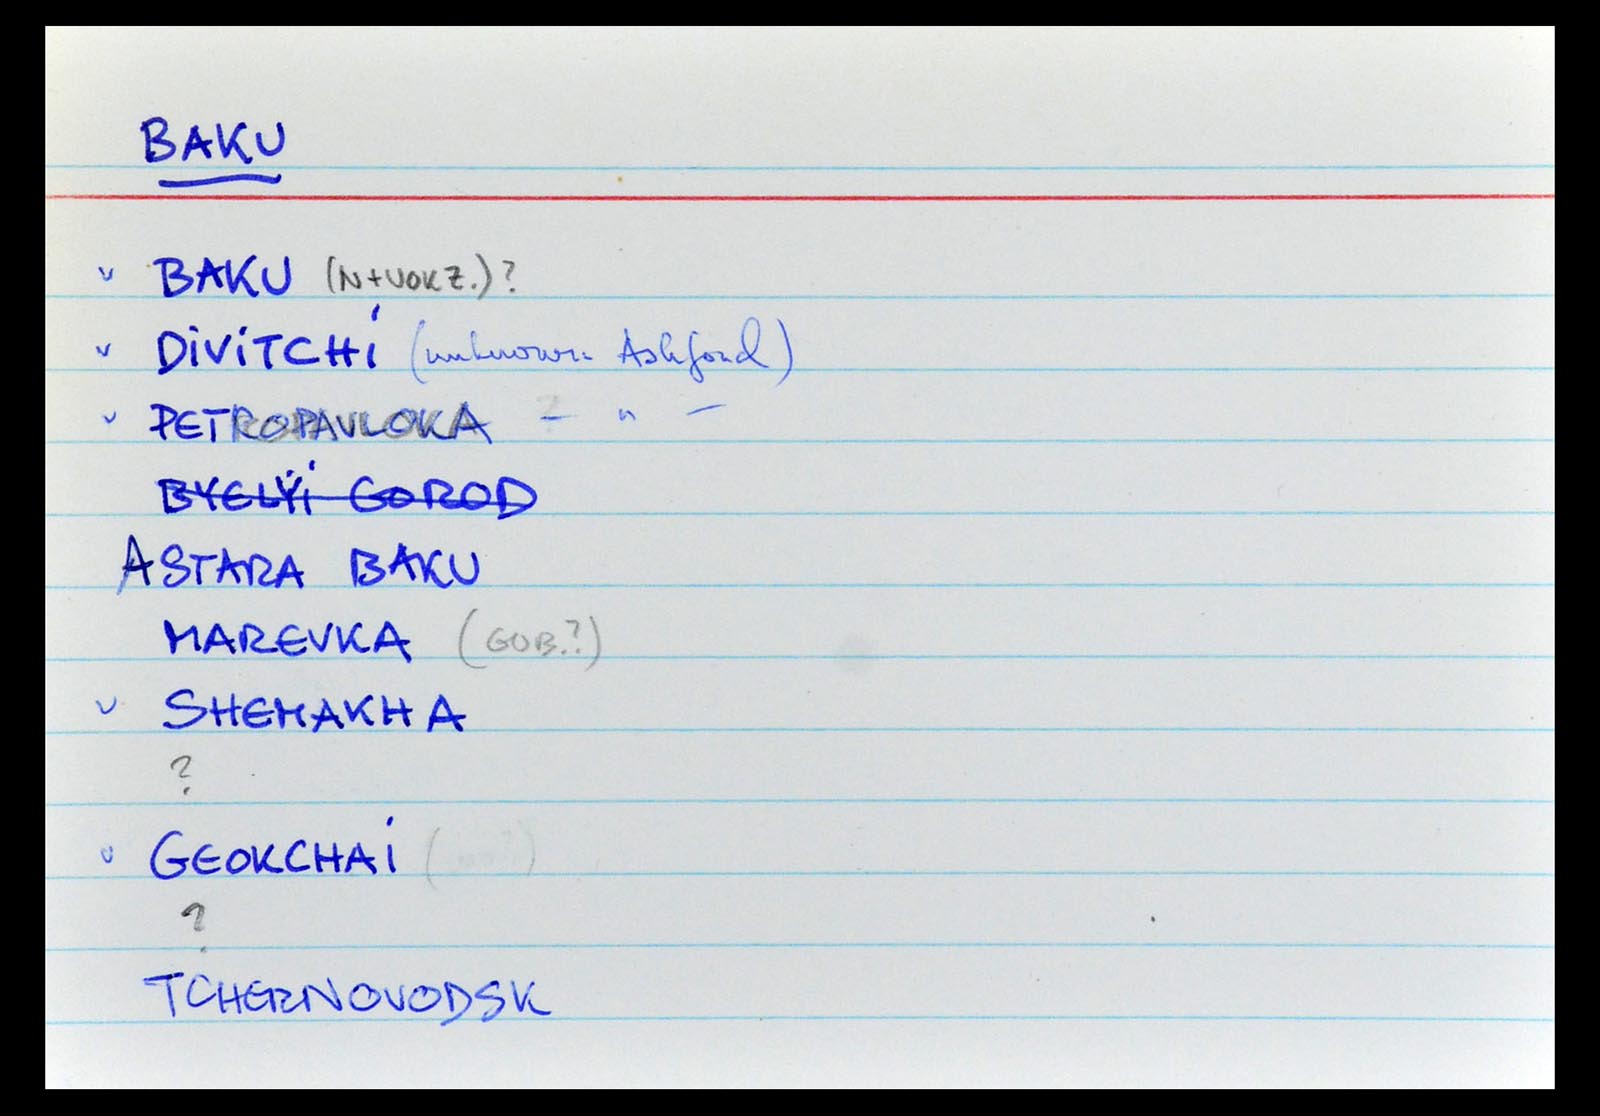 BAKU
BAKU (N+VOKZ.)?
DIVITCHI (unknown Ashford)
PETROPAVLOKA - " -
BYELYI GOROD
ASTARA BAKU
MAREVKA (GUB.?)
SHEMAKHA
?
GEOKCHAI
?
TCHERNOVODSK